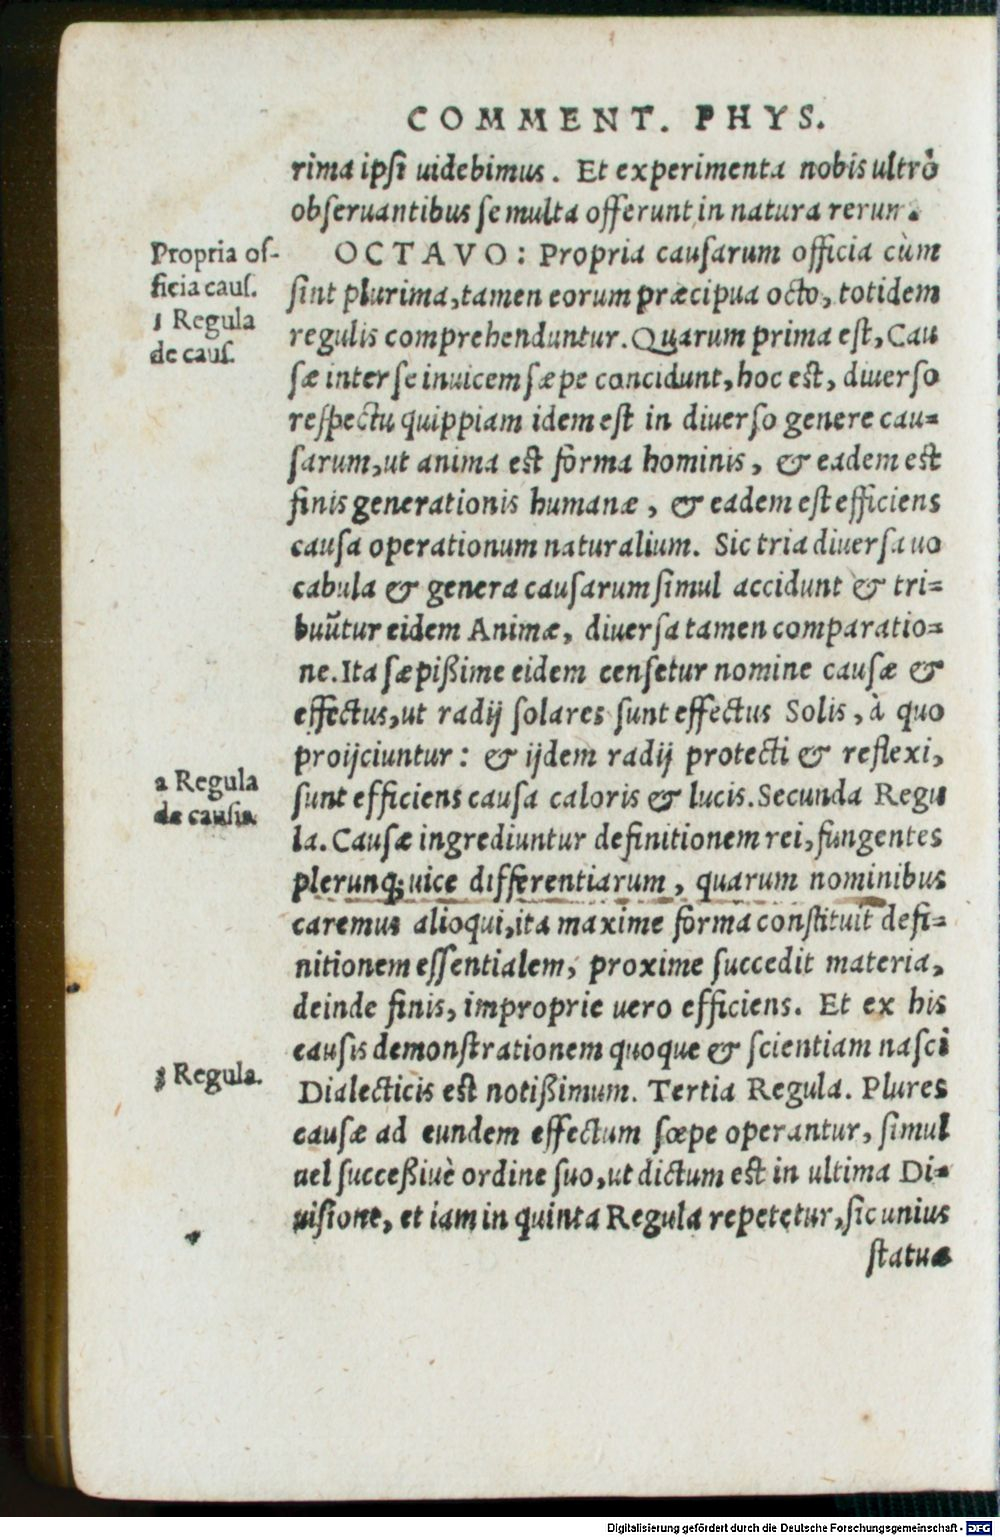 COMMENT. PHYS.
rima ipsi uidebimus. Et experimenta nobis ultrò
obseruantibus se multa offerunt in natura rerum.
Propria of-
ficia caus.
1 Regula
de caus.
OCTAVO: Propria causarum officia cùm
sint plurima, tamen eorum præcipua octo, totidem
regulis comprehenduntur. Quarum prima est, Cau
sæ inter se inuicem sæpe concidunt, hoc est, diuerso
respectu quippiam idem est in diuerso genere cau=
sarum, ut anima est forma hominis, & eadem est
finis generationis humanæ, & eadem est efficiens
causa operationum naturalium. Sic tria diuersa uo
cabula & genera causarum simul accidunt & tri=
buũtur eidem Animæ, diuersa tamen comparatio=
ne. Ita sæpißime eidem censetur nomine causæ &
effectus, ut radij solares sunt effectus Solis, à quo
proijciuntur: & ijdem radij protecti & reflexi,
2 Regula
de causis.
sunt efficiens causa caloris & lucis. Secunda Regu
la. Causæ ingrediuntur definitionem rei, fungentes
plerunq; uice differentiarum, quarum nominibus
caremus alioqui, ita maxime forma constituit defi=
nitionem essentialem, proxime succedit materia,
deinde finis, improprie uero efficiens. Et ex his
causis demonstrationem quoque & scientiam nasci
3 Regula.
Dialecticis est notißimum. Tertia Regula. Plures
causæ ad eundem effectum sœpe operantur, simul
uel succeßiuè ordine suo, ut dictum est in ultima Di=
uisione, et iam in quinta Regula repetetur, sic unius
statuæ
Digitalisierung gefördert durch die Deutsche Forschungsgemeinschaft - DFG